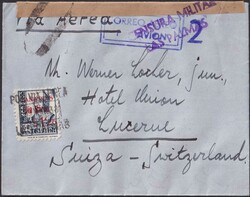 Via Aerea
CORREO
AVION
CENSURA MILITAR
LAS PALMAS
2
Mr. Werner Locher, jun.,
Hotel Union
Lucerne
Suiza - Switzerland